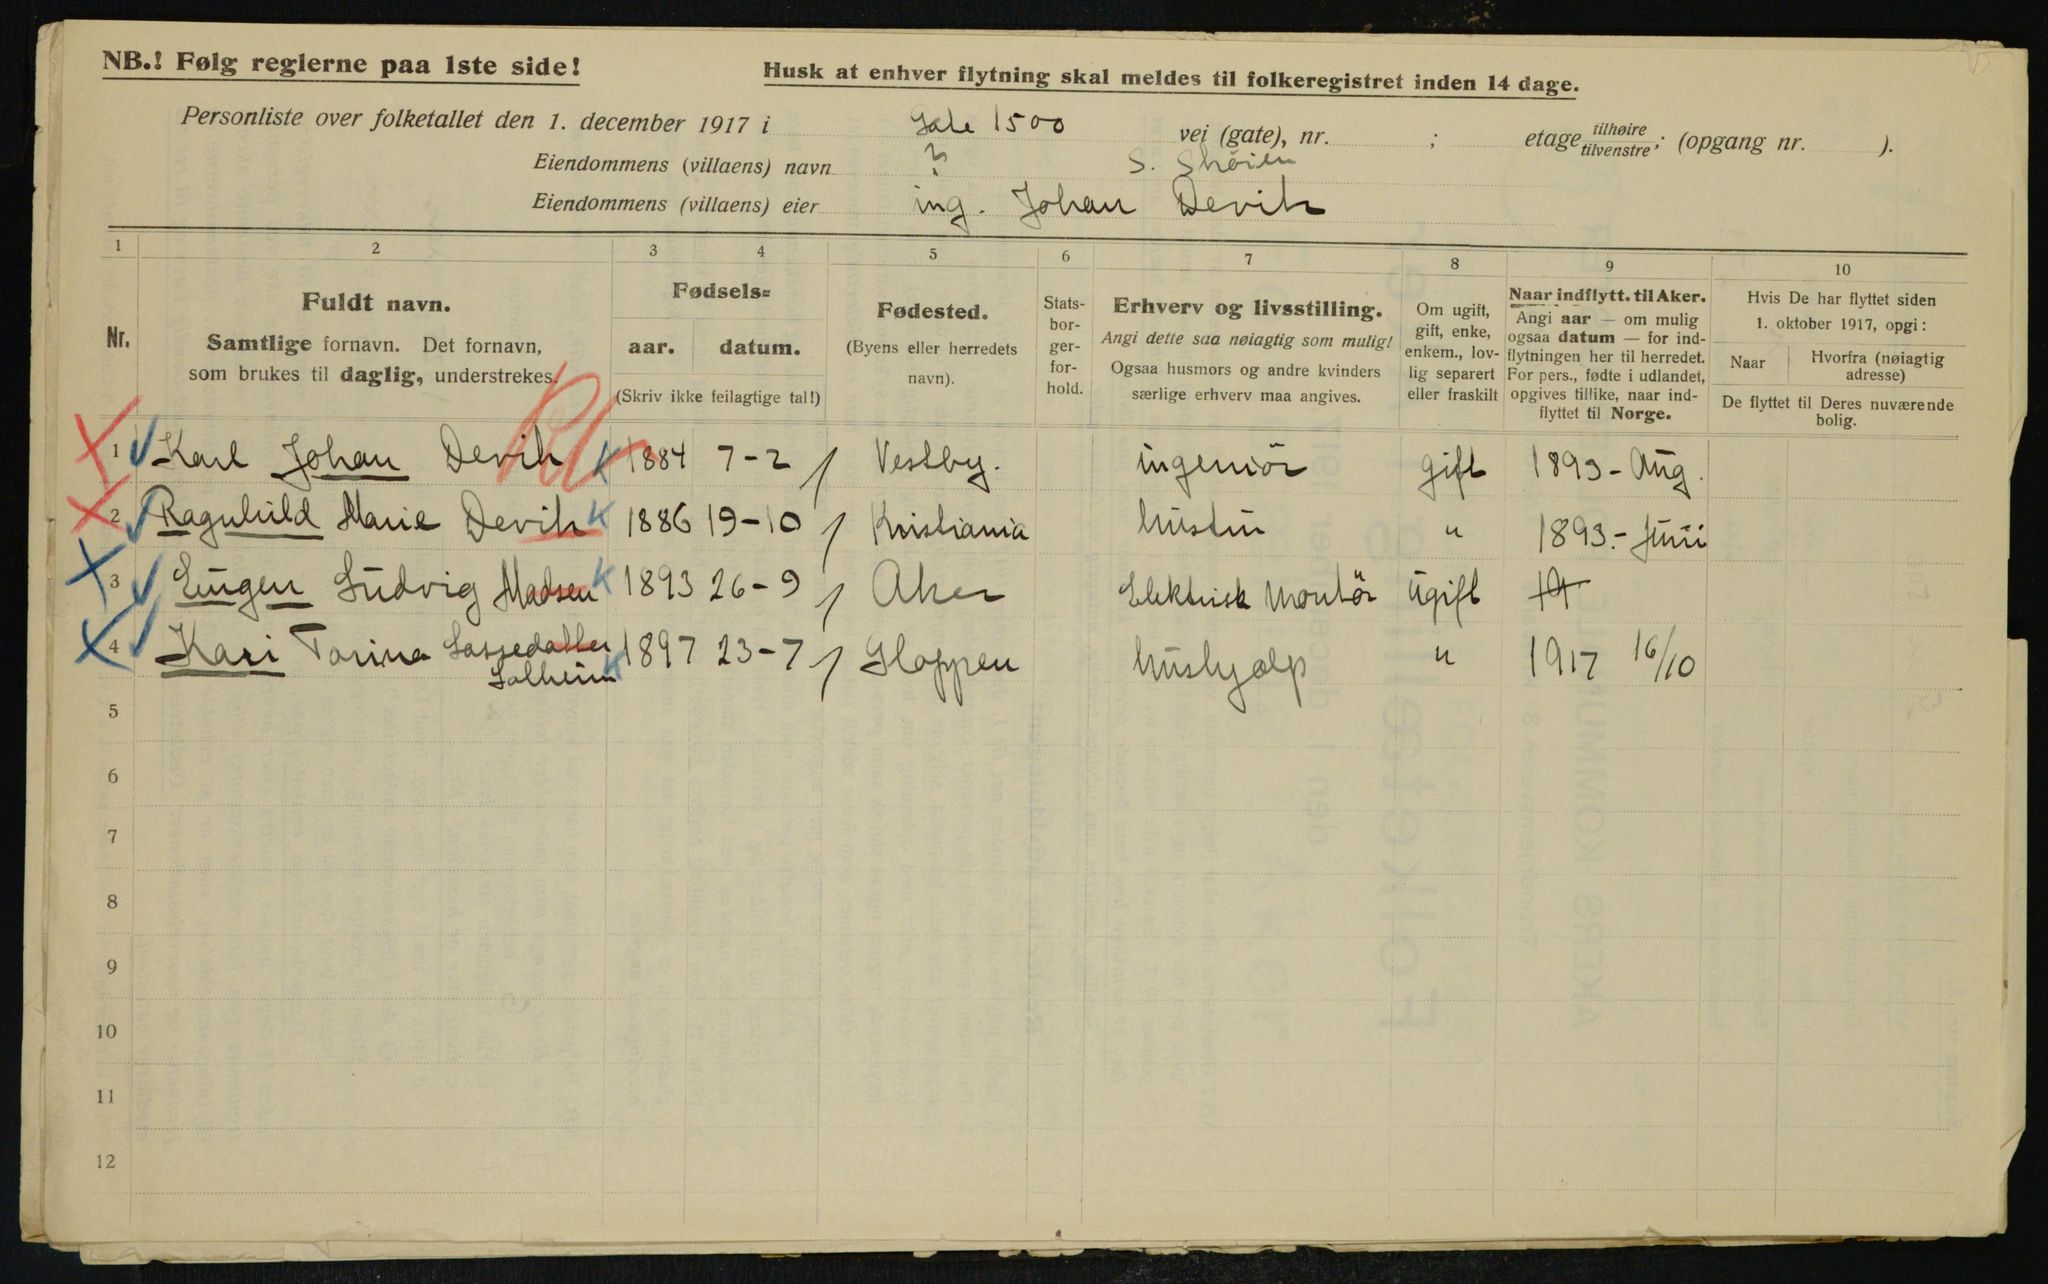 NB.! Følg reglerne paa 1ste side!
Husk at enhver flytning skal meldes til folkeregistret inden 14 dage.
Personliste over folketallet den 1. december 1917 i Gate 1500 vei (gate), nr. ; etage tilhøire tilvenstre; (opgang nr. ).
Eiendommens (villaens) navn ? S. Skøien
Eiendommens (villaens) eier ing. Johan Devik
1 2 3 4 5 6 7 8 9 10
Nr.
Fuldt navn.
Samtlige fornavn. Det fornavn,
som brukes til daglig, understrekes.
Fødsels=
aar. datum.
(Skriv ikke feilagtige tal!)
Fødested.
(Byens eller herredets
navn).
Stats-
bor-
ger-
for-
hold.
Erhverv og livsstilling.
Angi dette saa nøiagtig som mulig!
Ogsaa husmors og andre kvinders
særlige erhverv maa angives.
Om ugift,
gift, enke,
enkem., lov-
lig separert
eller fraskilt
Naar indflytt. til Aker.
Angi aar — om mulig
ogsaa datum — for ind-
flytningen her til herredet.
For pers., fødte i udlandet,
opgives tillike, naar ind-
flyttet til Norge.
Hvis De har flyttet siden
1. oktober 1917, opgi:
Naar Hvorfra (nøiagtig
adresse)
De flyttet til Deres nuværende
bolig.
1 Karl Johan Devik K 1884 7-2 / Vestby. ingeniør gift 1893-Aug.
2 Ragnhild Marie Devik K 1886 19-10 / Kristiania hustru " 1893.-Juni
3 Eugen Ludvig Madsen K 1893 26-9 / Aker Elektrisk Montör ugift
4 Kari Torina 1897 23-7 / Gloppen hushjælp " 1917 16/10
Solheim K
5
6
7
8
9
10
11
12